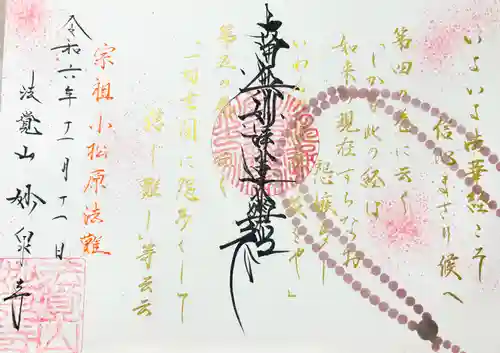 いよいよ法華経こそ
信心まさり候へ
第四の巻に云く
しかも此の経は
如来の現在すらなお
怨嫉多し
いわんや滅度の後をや」
第五の巻に云く
「一切世間に怨多くして
信じ難し」等云云
南無妙法蓮華経
宗祖小松原法難
令和六年十一月十一日
法覚山 妙泉寺